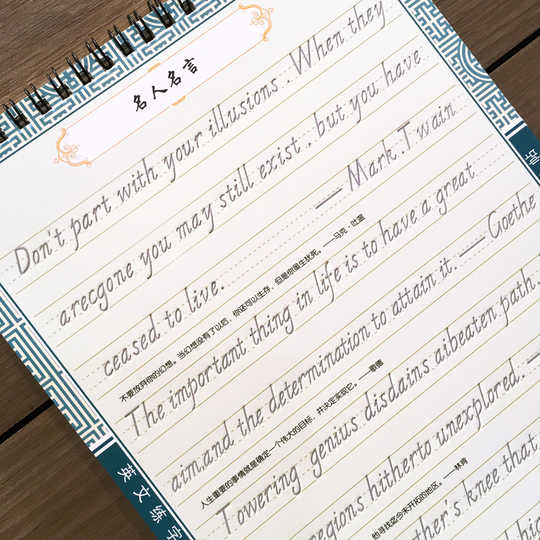 名人名言
Don't part with your illusions . When they
arecgone you may still exist , but you have
ceased to live. — Mark.Twain
不要放弃你的幻想。当幻想没有了以后，你还可以生存，但是你虽生犹死。——马克·吐温
The important thing in life is to have a great
aim,and the determination to attain it. — Goethe
人生重要的事情就是确定一个伟大的目标，并决定实现它。——歌德
Towering genius disdains aibeaten path.
regions hitherto unexplored. —
他寻找迄今未开拓的地区。——林肯
ther's knee that
英文练字